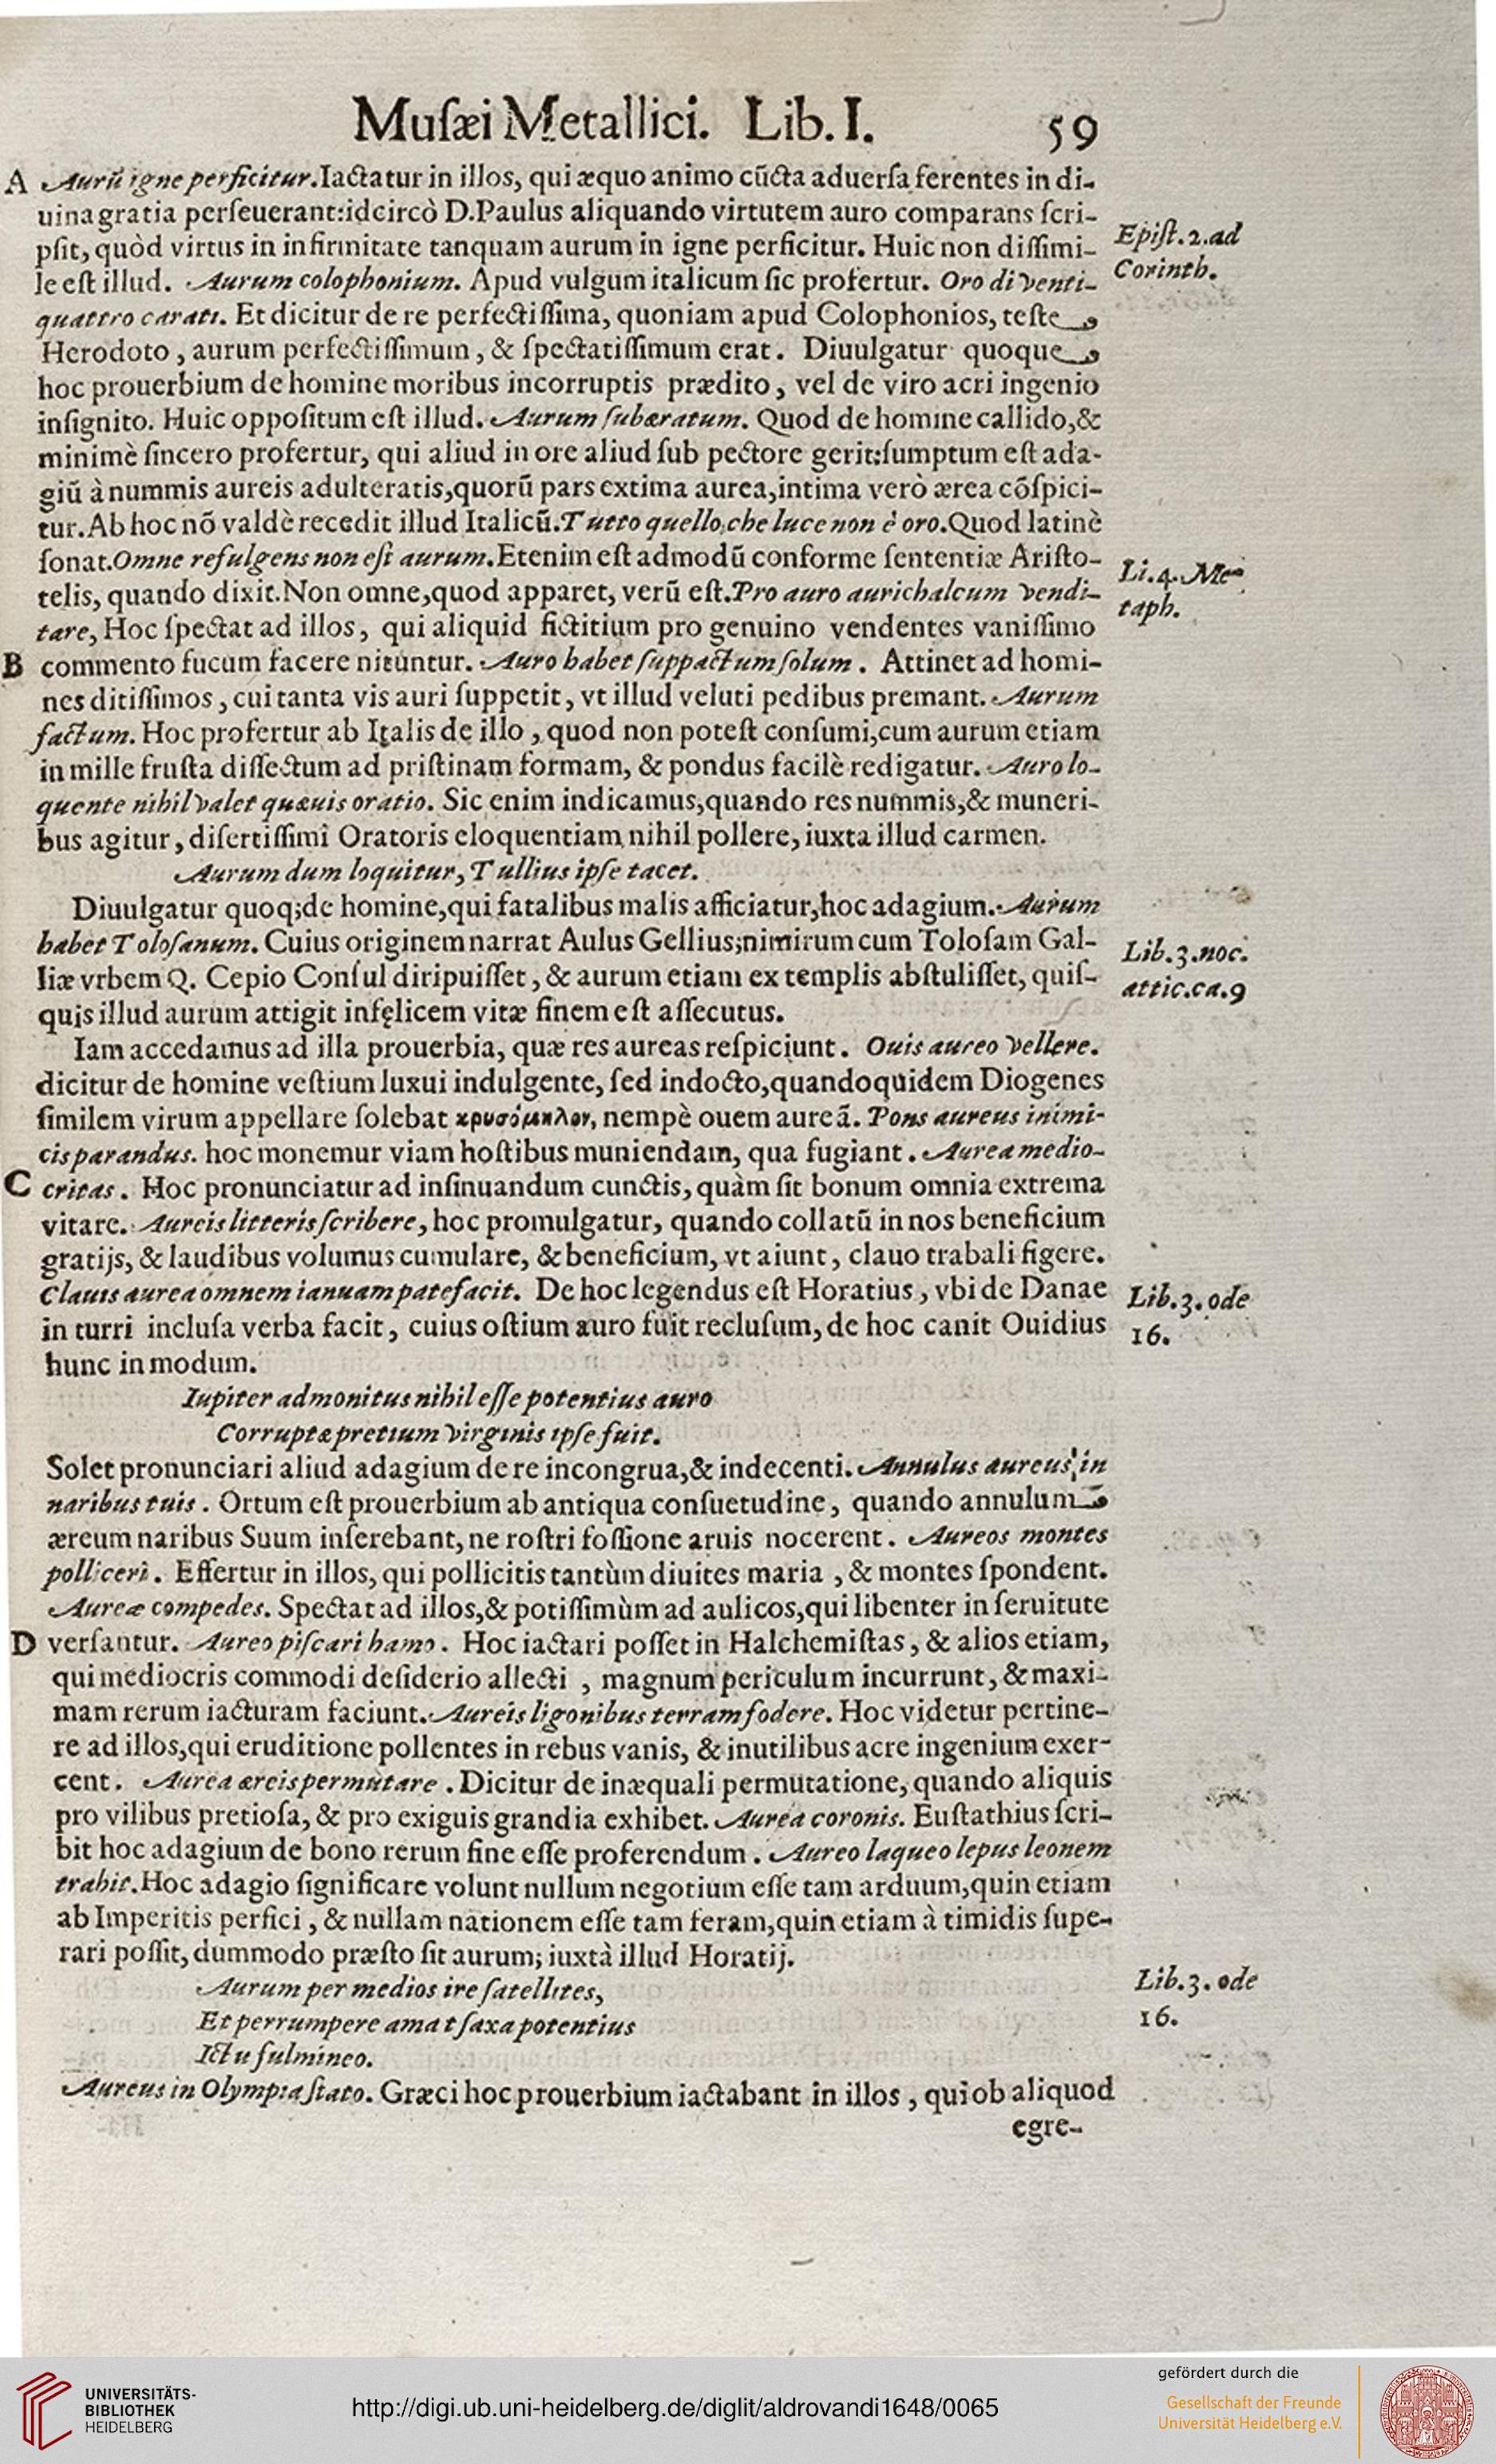 Muſæi Metallici. Lib. I. 59
A Aurũ igne perficitur. Iactatur in illos, qui æquo animo cũcta aduerſa ferentes in di-
uina gratia perſeuerant: idcircò D. Paulus aliquando virtutem auro comparans ſcri-
pſit, quòd virtus in infirmitate tanquam aurum in igne perficitur. Huic non diſſimi-
Epiſt. 2. ad
le eſt illud. Aurum colophonium. Apud vulgum italicum ſic profertur. Oro di venti-
Corinth.
quattro carati. Et dicitur de re perfectiſſima, quoniam apud Colophonios, teſte
Herodoto, aurum perfectiſſimum, & ſpectatiſſimum erat. Diuulgatur quoque
hoc prouerbium de homine moribus incorruptis prædito, vel de viro acri ingenio
inſignito. Huic oppoſitum eſt illud. Aurum ſubæratum. Quod de homine callido, &
minimè ſincero profertur, qui aliud in ore aliud ſub pectore gerit: ſumptum eſt ada-
giũ à nummis aureis adulteratis, quorũ pars extima aurea, intima verò ærea cõſpici-
tur. Ab hoc nõ valdè recedit illud Italicũ. Tutto quello, che luce non è oro. Quod latinè
ſonat. Omne refulgens non eſt aurum. Etenim eſt admodũ conforme ſententiæ Ariſto-
telis, quando dixit. Non omne, quod apparet, verũ eſt. Pro auro aurichalcum vendi-
Li. 4. Me-
tare, Hoc ſpectat ad illos, qui aliquid fictitium pro genuino vendentes vaniſſimo
taph.
B commento fucum facere nituntur. Auro habet ſuppactum ſolum. Attinet ad homi-
nes ditiſſimos, cui tanta vis auri ſuppetit, vt illud veluti pedibus premant. Aurum
factum. Hoc profertur ab Italis de illo, quod non poteſt conſumi, cum aurum etiam
in mille fruſta diſſectum ad priſtinam formam, & pondus facilè redigatur. Auro lo-
quente nihil valet quæuis oratio. Sic enim indicamus, quando res nummis, & muneri-
bus agitur, diſertiſſimi Oratoris eloquentiam nihil pollere, iuxta illud carmen.
Aurum dum loquitur, Tullius ipſe tacet.
Diuulgatur quoq; de homine, qui fatalibus malis afficiatur, hoc adagium. Aurum
habet Toloſanum. Cuius originem narrat Aulus Gellius; nimirum cum Toloſam Gal-
Lib. 3. noc.
liæ vrbem Q. Cepio Conſul diripuiſſet, & aurum etiam ex templis abſtuliſſet, quiſ-
attic. ca. 9
quis illud aurum attigit infęlicem vitæ finem eſt aſſecutus.
Iam accedamus ad illa prouerbia, quæ res aureas reſpiciunt. Ouis aureo vellere.
dicitur de homine veſtium luxui indulgente, ſed indocto, quandoquidem Diogenes
ſimilem virum appellare ſolebat χρυσόμηλον, nempè ouem aureã. Pons aureus inimi-
cis parandus. hoc monemur viam hoſtibus muniendam, qua fugiant. Aurea medio-
C critas. Hoc pronunciatur ad inſinuandum cunctis, quàm ſit bonum omnia extrema
vitare. Aureis litteris ſcribere, hoc promulgatur, quando collatũ in nos beneficium
gratijs, & laudibus volumus cumulare, & beneficium, vt aiunt, clauo trabali figere.
Clauis aurea omnem ianuam patefacit. De hoc legendus eſt Horatius, vbi de Danae
Lib. 3. ode
in turri incluſa verba facit, cuius oſtium auro fuit recluſum, de hoc canit Ouidius
16.
hunc in modum.
Iupiter admonitus nihil eſſe potentius auro
Corruptæ pretium virginis ipſe fuit.
Solet pronunciari aliud adagium de re incongrua, & indecenti. Annulus aureus in
naribus tuis. Ortum eſt prouerbium ab antiqua conſuetudine, quando annulum
æreum naribus Suum inſerebant, ne roſtri foſſione aruis nocerent. Aureos montes
polliceri. Effertur in illos, qui pollicitis tantùm diuites maria, & montes ſpondent.
Aureæ compedes. Spectat ad illos, & potiſſimùm ad aulicos, qui libenter in ſeruitute
D verſantur. Aureo piſcari hamo. Hoc iactari poſſet in Halchemiſtas, & alios etiam,
qui mediocris commodi deſiderio allecti, magnum periculum incurrunt, & maxi-
mam rerum iacturam faciunt. Aureis ligonibus terram fodere. Hoc videtur pertine-
re ad illos, qui eruditione pollentes in rebus vanis, & inutilibus acre ingenium exer-
cent. Aurea æreis permutare. Dicitur de inæquali permutatione, quando aliquis
pro vilibus pretioſa, & pro exiguis grandia exhibet. Aurea coronis. Euſtathius ſcri-
bit hoc adagium de bono rerum fine eſſe proferendum. Aureo laqueo lepus leonem
trahit. Hoc adagio ſignificare volunt nullum negotium eſſe tam arduum, quin etiam
ab Imperitis perfici, & nullam nationem eſſe tam feram, quin etiam à timidis ſupe-
rari poſſit, dummodo præſto ſit aurum; iuxtà illud Horatij.
Aurum per medios ire ſatellites,
Lib. 3. ode
Et perrumpere amat ſaxa potentius
16.
Ictu fulmineo.
Aureus in Olympia ſtato. Græci hoc prouerbium iactabant in illos, qui ob aliquod
egre-
UNIVERSITÄTS-
BIBLIOTHEK
HEIDELBERG
http://digi.ub.uni-heidelberg.de/diglit/aldrovandi1648/0065
gefördert durch die
Gesellschaft der Freunde
Universität Heidelberg e.V.